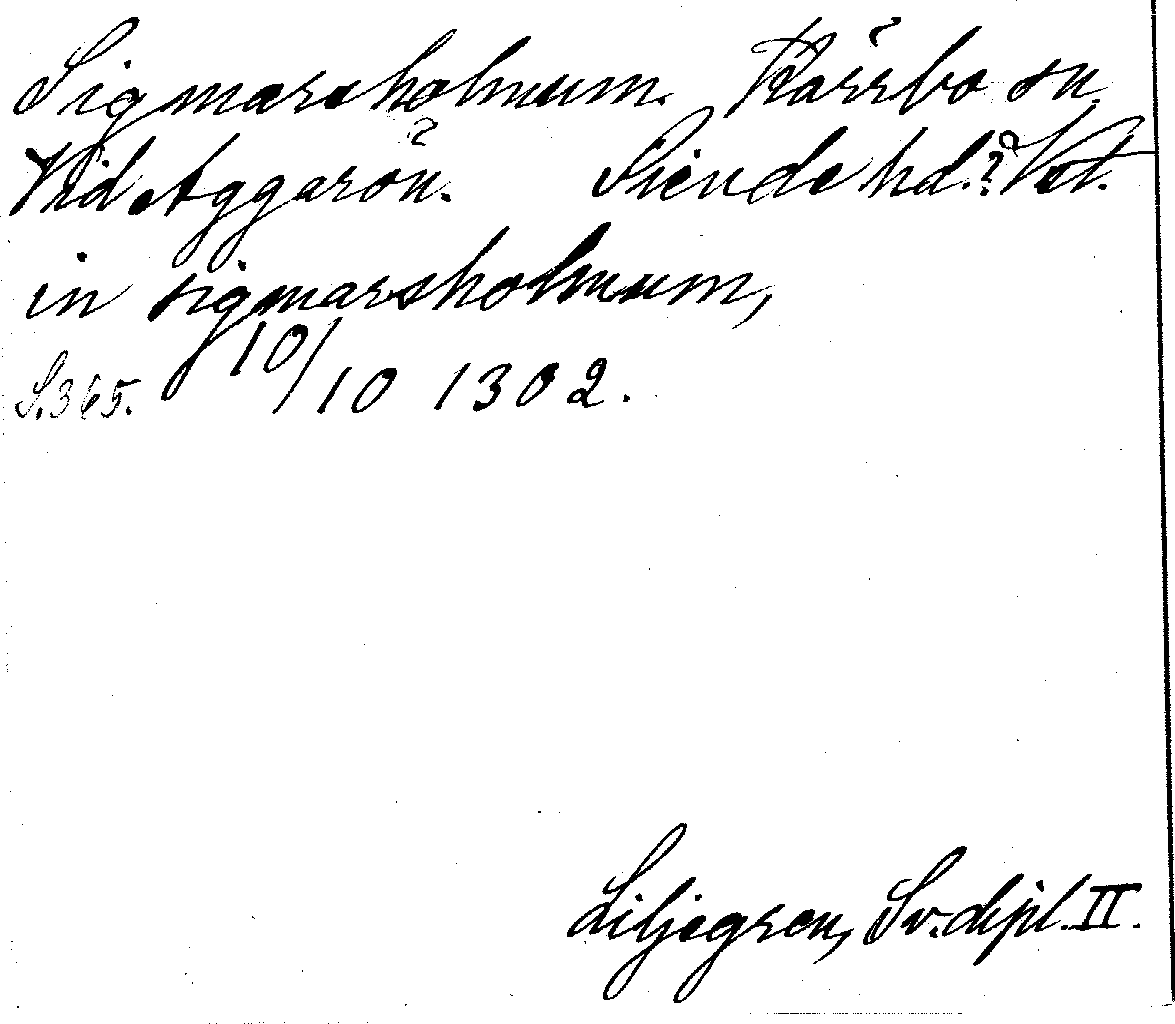 Sigmarsholmum. Kärrbo sn,
Vid Aggarön. Siende hd.? Vstm.
in sigmarsholmum,
S. 365. 10/10 1302.
Liljegren, Sv. dipl. II.